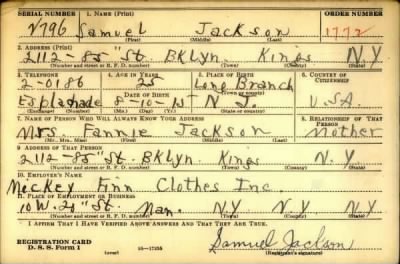 SERIAL NUMBER 1. NAME (Print) ORDER NUMBER
V796 Samuel Jackson 1772
(First) (Middle) (Last)
2. ADDRESS (Print)
2112 - 85" St. BKLyn. Kings N.Y.
(Number and street or R. F. D. number) (Town) (County) (State)
3. TELEPHONE 4. AGE IN YEARS 5. PLACE OF BIRTH 6. COUNTRY OF CITIZENSHIP
2-0186 25 Long Branch
DATE OF BIRTH (Town or county)
Esplanade 8-10-15 N J. U.S.A.
(Exchange) (Number) (Mo.) (Day) (Yr.) (State or country)
7. NAME OF PERSON WHO WILL ALWAYS KNOW YOUR ADDRESS 8. RELATIONSHIP OF THAT PERSON
Mrs. Fannie Jackson Mother
(Mr., Mrs., Miss) (First) (Middle) (Last)
9. ADDRESS OF THAT PERSON
2112-85" St. BKLyn. Kings N.Y
(Number and street or R. F. D. number) (Town) (County) (State)
10. EMPLOYER'S NAME
Mickey Finn Clothes Inc.
11. PLACE OF EMPLOYMENT OR BUSINESS
10 W. 20" St. Man. N.Y N.Y
(Number and street or R. F. D. number) (Town) (County) (State)
I AFFIRM THAT I HAVE VERIFIED ABOVE ANSWERS AND THAT THEY ARE TRUE.
REGISTRATION CARD
D. S. S. Form 1 16-17105 Samuel Jackson
(over) (Registrant's signature)